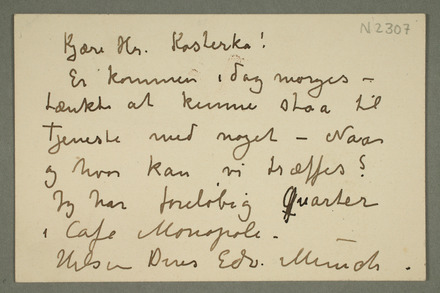 N 2307
Kjære Hr. Kosterka!
Er kommen idag morges –
tænkte at kunne staa til
Tjeneste med noget – Naar
og hvor kan vi træffes?
Jeg har foreløbig Quarter
i Café Monopole.
Hilsen Deres Edv. Munch.